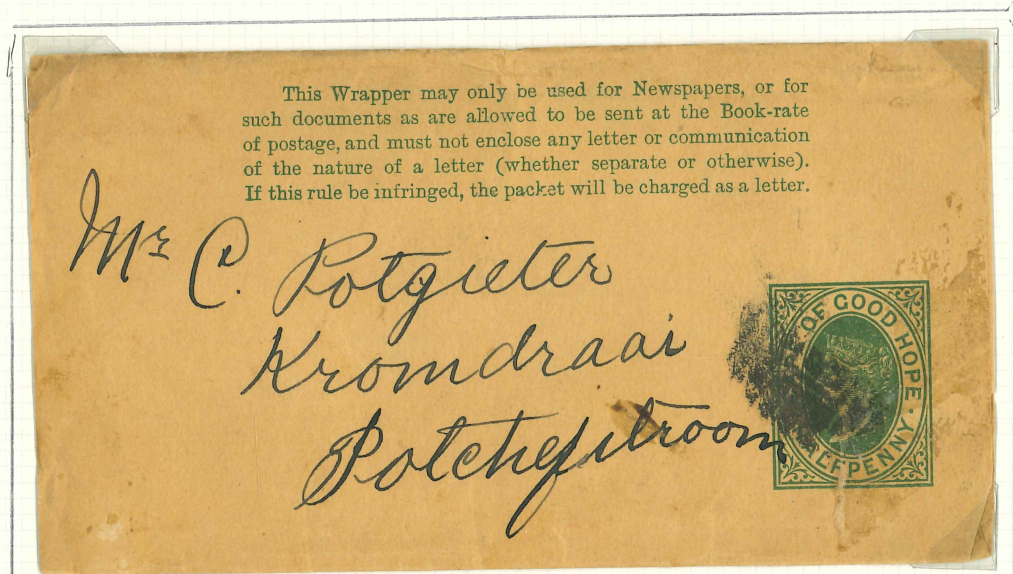 This Wrapper may only be used for Newspapers, or for
such documents as are allowed to be sent at the Book-rate
of postage, and must not enclose any letter or communication
of the nature of a letter (whether separate or otherwise).
If this rule be infringed, the packet will be charged as a letter.
Mr C. Potgieter
Kromdraai
Potchefstroom
OF GOOD HOPE
HALFPENNY